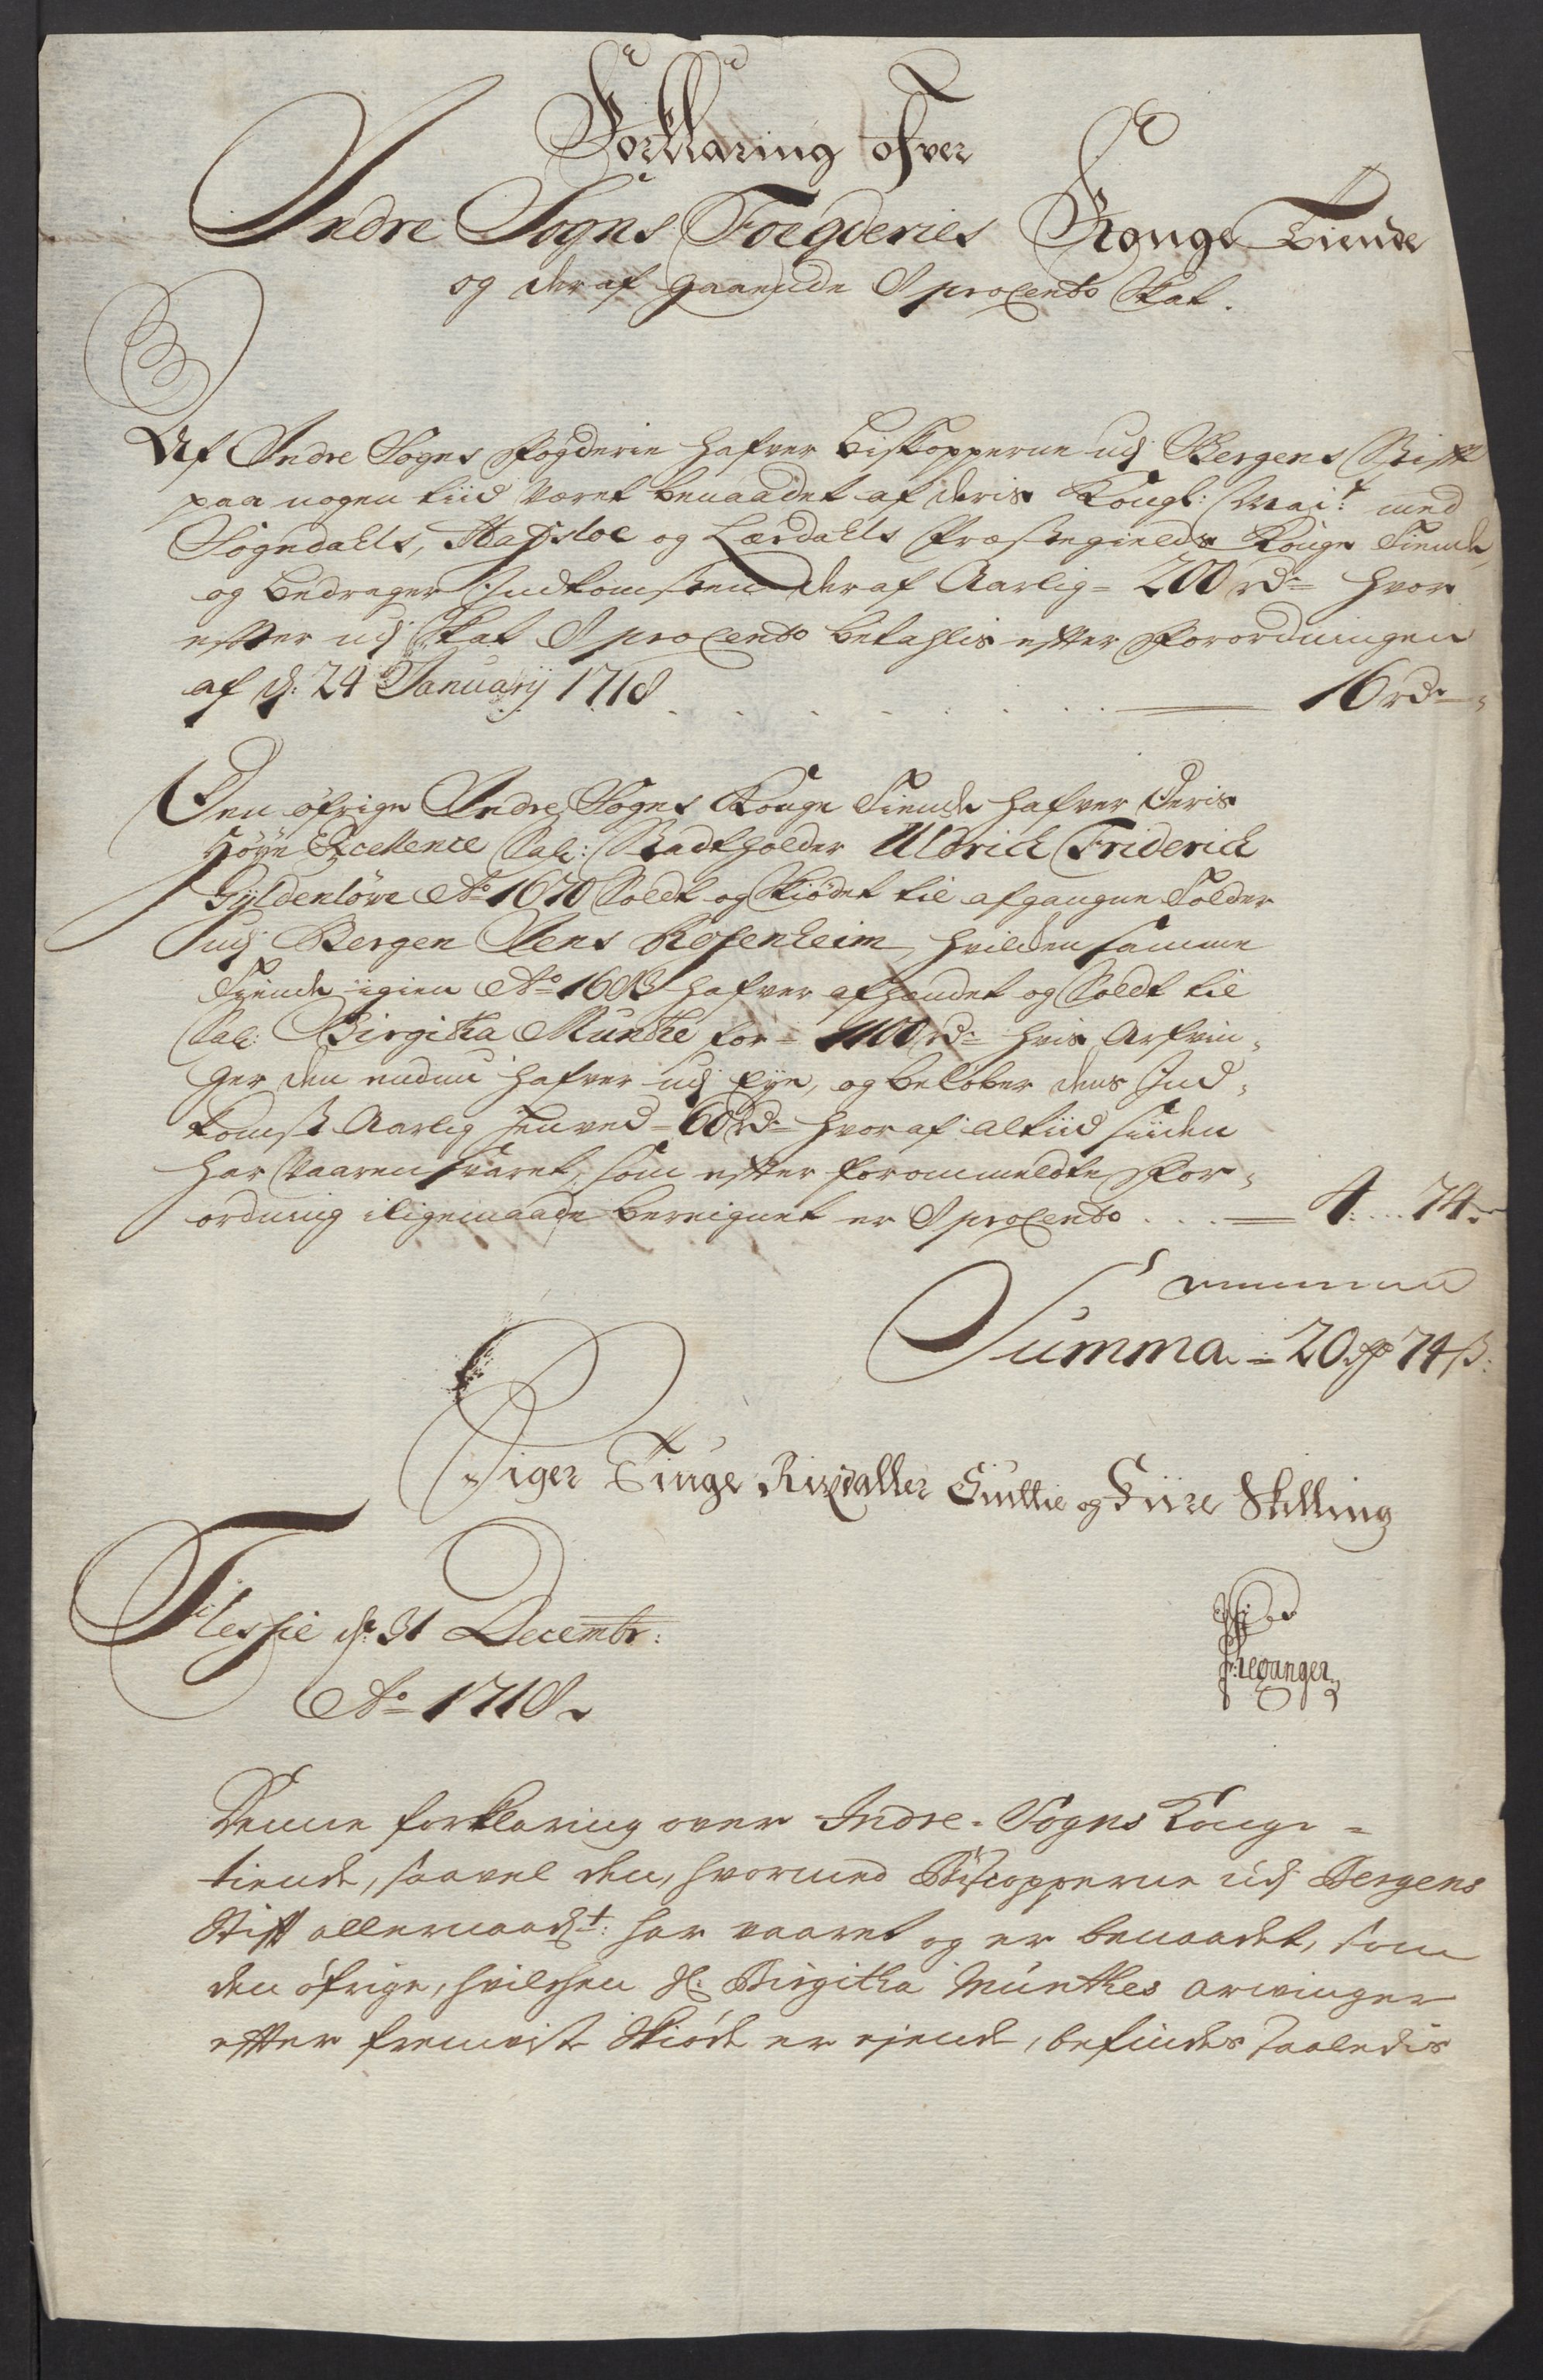 Forklaring ofver
Indre Sogns Foegderies Konge Tiende
og deraf gaaende 8 procento Skat.
Af Indre Sogns Fogderie hafver Biskopperne udj Bergens Stift
paa nogen tiid været benaadet af deris Kongl: Mai:t med
Sogndahls, Hafsloe og Lærdahls Præstegields Konge Tiende,
og bedrager Indkomsten deraf Aarlig = 200 rd= hvor
efter udj Skat 8 procento betahlis efter Forordningen
af d: 24 January 1718 . . . . . . . 16 rd=
Den öfrige Indre Sogns Konge Tiende hafver Deris
Höye Excellence Sal: Stadtholder Uldrich Friderich
Gyldenlöve Ao 1670 Soldt og Skiödet til afgangne Tolder
udj Bergen Jens Rosenheim, hvilcken samme
Tiende igien Ao 1683 hafver afhendet og Soldt til
Sal: Birgitha Munthe for = 1100 rd= hvis Arfvin-
ger den endnu hafver udj Eye, og beløber dens Ind-
komst Aarlig henved = 60 rd= hvoraf altiid siiden
har Vaaren svaret, som efter forommeldte For-
ordning iligemaade beregnet er 8 procento . . . 4 . . 74
Summa = 20 rd 74 s:
Siger Tiuge Rixdaller Siuttie og Fiire Skilling
Flessie d: 31 Decembr:
Ao 1718
Denne forklaring over Indre-Sogns Konge=
tiende, saavel den, hvormed Biscopperne udj Bergens
Stift allernaadst: har vaaret og er benaadet, som
den öfrige, hvilchen Sl: Birgitha Munthes arvinger
efter fremviste Skiöde er ejende, befindes saaledis